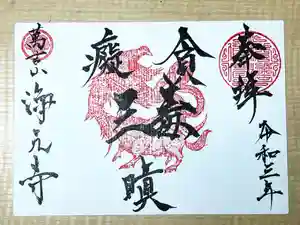 奉拝
令和三年
貪
瞋
癡
三毒
海元寺